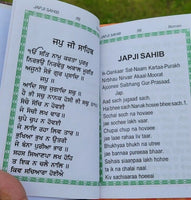 JAPJI SAHIB
ਜਪੁ ਜੀ ਸਾਹਿਬ
ੴ ਸਤਿ ਨਾਮੁ ਕਰਤਾ ਪੁਰਖੁ
ਨਿਰਭਉ ਨਿਰਵੈਰੁ ਅਕਾਲ ਮੂਰਤਿ
ਅਜੂਨੀ ਸੈਭੰ ਗੁਰ ਪ੍ਰਸਾਦਿ ॥
॥ ਜਪੁ ॥
ਆਦਿ ਸਚੁ ਜੁਗਾਦਿ ਸਚੁ ॥
ਹੈ ਭੀ ਸਚੁ ਨਾਨਕ ਹੋਸੀ ਭੀ ਸਚੁ
ਸੋਚੈ ਸੋਚਿ ਨ ਹੋਵਈ
ਜੇ ਸੋਚੀ ਲਖ ਵਾਰ ॥
ਚੁਪੈ ਚੁਪ ਨ ਹੋਵਈ
ਜੇ ਲਾਇ ਰਹਾ ਲਿਵ ਤਾਰ ॥
ਭੁਖਿਆ ਭੁਖ ਨ ਉਤਰੀ
ਜੇ ਬੰਨਾ ਪੁਰੀਆ ਭਾਰ ॥
ਸਹਸ ਸਿਆਣਪਾ ਲਖ ਹੋਹਿ
ਤ ਇਕ ਨ ਚਲੈ ਨਾਲਿ ॥
ਕਿਵ ਸਚਿਆਰਾ ਹੋਈਐ
JAPJI SAHIB
JAPJI SAHIB
Ik-Oankaar Sat-Naam Kartaa-Purakh
Nirbhau Nirvair Akaal-Moorat
Ajoonee Saibhang Gur Prasaad.
Jap.
Aad sach jugaad sach.
Hai bhee sach Nanak hosee bhee sach.
Sochai soch na hovaee
Chupai chup na hovaee
jee laae rahaa liv taar.
Bhukhiaa bhukh na utree
Sahas siaanpaa lakh hohe
Ta ik na chalai naal.
Kiv sachiaaraa hoeeai